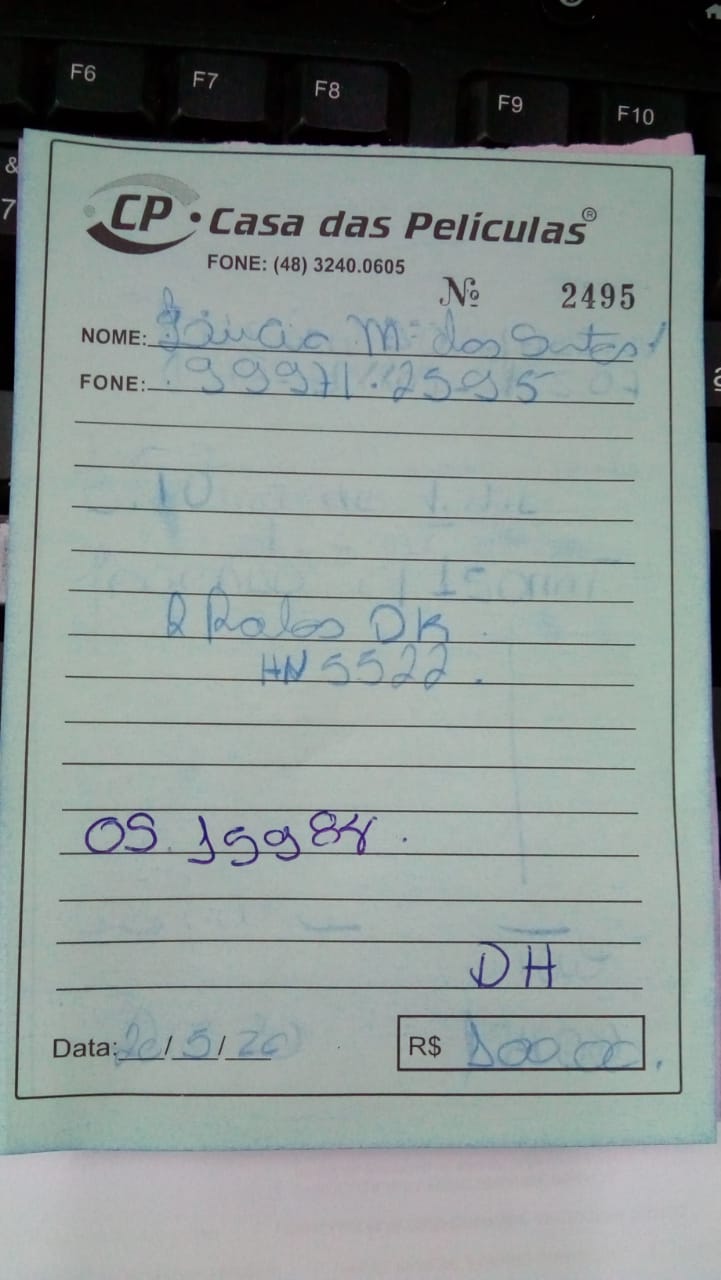 F6 F7 F8 F9 F10
&
7
CP • Casa das Películas®
FONE: (48) 3240.0605
Nº 2495
NOME: M. dos Santos
FONE: 99971.2595
2 Ralos DK
HN 5522.
OS. 15984.
DH
Data: 20/5/20 R$ 100,00.